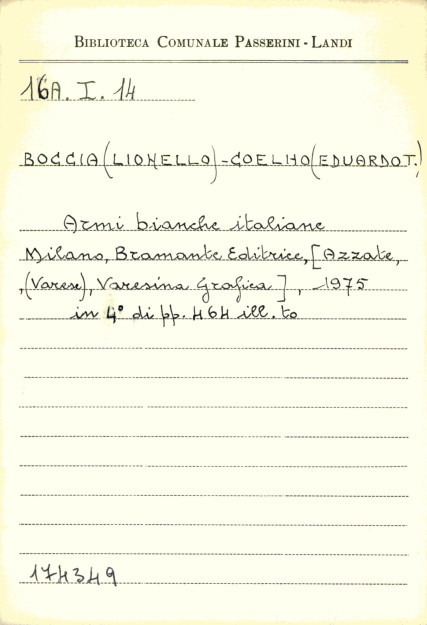 BIBLIOTECA COMUNALE PASSERINI - LANDI
16A. I. 14
BOCCIA (LIONELLO) - COELHO (EDUARDO T.)
Armi bianche italiane
Milano, Bramante Editrice, [Azzate,
,(Varese), Varesina Grafica], 1975
in 4° di pp. 464 ill. to
174349